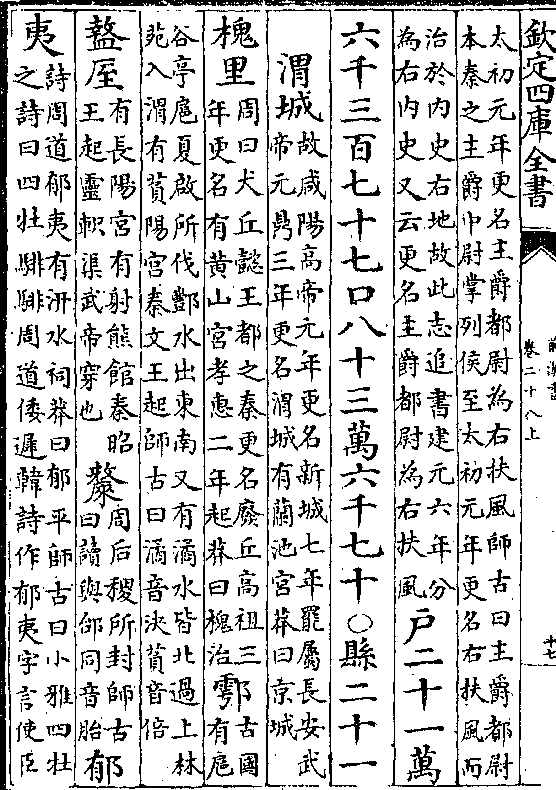 欽定四庫全書
前漢書
卷二十八上
十七
太初元年更名主爵都尉為右扶風師古曰主爵都尉
本秦之主爵中尉掌列侯至太初元年更名右扶風而
治於內史右地故此志追書建元六年分
為右內史又云更名主爵都尉為右扶風
戶二十一萬
六千三百七十七口八十三萬六千七十○縣二十一
渭城
故咸陽高帝元年更名新城七年罷屬長安武
帝元鼎三年更名渭城有蘭池宮莽曰京城
槐里
周曰犬丘懿王都之秦更名廢丘高祖三
年更名有黃山宮孝惠二年起莽曰槐治
鄠
古國
有扈
谷亭扈夏啟所伐酆水出東南又有潏水皆北過上林
苑入渭有萯陽宮秦文王起師古曰潏音決萯音倍
盩厔
有長陽宮有射熊館秦昭
王起靈軹渠武帝穿也
斄
周后稷所封師古
曰讀與邰同音胎
郁
夷
詩周道郁夷有汧水祠莽曰郁平師古曰小雅四牡
之詩曰四牡騑騑周道倭遲韓詩作郁夷字言使臣